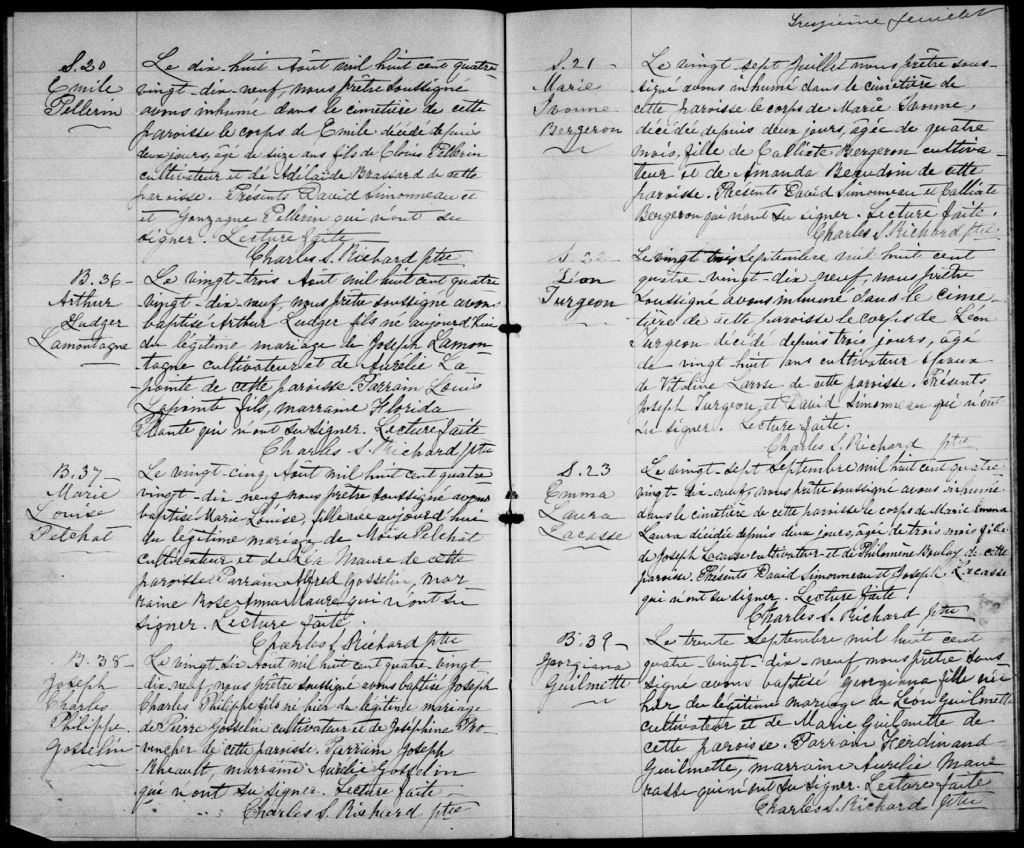 S.20
Emile
Pellerin
Le dix-huit Août mil huit cent quatre
vingt-dix-neuf, nous prêtre soussigné
avons inhumé dans le cimetière de cette
paroisse le corps de Emile décédé depuis
deux jours, âgé de seize ans fils de Clovis Pellerin
cultivateur et de Adélaïde Brassard de cette
paroisse. Présents David Simonneau et
et Gonzague Pellerin qui n'ont su
signer. Lecture faite
Charles S. Richard ptre
B.36-
Arthur
Ludger
Lamontagne
Le vingt-trois Août mil huit cent quatre
vingt-dix neuf, nous prêtre soussigné avons
baptisé Arthur Ludger fils né aujourd'hui
du légitime mariage de Joseph Lamon-
tagne cultivateur et de Aurélie La
pointe de cette paroisse. Parrain Louis
Lapointe fils, marraine Florida
Plante qui n'ont su signer. Lecture faite
Charles S. Richard ptre
B.37-
Marie
Louise
Pelchat
Le vingt-cinq Août mil huit cent quatre
vingt-dix neuf nous prêtre soussigné avons
baptisé Marie Louise, fille née aujourd'hui
du légitime mariage de Moïse Pelchat
cultivateur et de Léa Maure de cette
paroisse. Parrain Alfred Gosselin, mar
raine Rose Anna Maure qui n'ont su
signer. Lecture faite.
Charles S. Richard ptre
B.38-
Joseph
Charles
Philippe
Gosselin
Le vingt-six Août mil huit cent quatre-vingt
dix-neuf, nous prêtre soussigné avons baptisé Joseph
Charles Philippe fils né hier du légitime mariage
de Pierre Gosselin cultivateur et de Joséphine Pro
vencher de cette paroisse. Parrain Joseph
Rheault, marraine Aurélie Gosselin
qui n'ont su signer. Lecture faite-
Charles S. Richard ptre
Treizième feuillet
S.21-
Marie
Ivonne
Bergeron
Le vingt-sept Juillet nous prêtre sous-
signé avons inhumé dans le cimetière de
cette paroisse le corps de Marie Ivonne,
décédée depuis deux jours, âgée de quatre
mois, fille de Callixte Bergeron cultiva-
teur et de Amanda Beaudoin de cette
paroisse. Présents David Simonneau et Callixte
Bergeron qui n'ont su signer. Lecture faite.
Charles S. Richard ptre
S.22-
Léon
Turgeon
Le vingt trois Septembre mil huit cent
quatre-vingt-dix neuf, nous prêtre
soussigné avons inhumé dans le cime-
tière de cette paroisse le corps de Léon
Turgeon décédé depuis trois jours, âgé
de vingt huit ans cultivateur époux
de Vitaline Larose de cette paroisse. Présents
Joseph Turgeon et David Simonneau qui n'ont
su signer. Lecture faite.
Charles S. Richard ptre
S.23
Emma
Laura
Lacasse
Le vingt-sept Septembre mil huit cent quatre
vingt-dix-neuf, nous prêtre soussigné avons inhumé
dans le cimetière de cette paroisse le corps de Marie Emma
Laura décédée depuis deux jours, âgée de trois mois fille
de Joseph Lacasse cultivateur et de Philomène Boulay de cette
paroisse. Présents David Simonneau et Joseph Lacasse
qui n'ont su signer. Lecture faite.
Charles S. Richard ptre
B.39-
Georgiana
Guilmette
Le trente Septembre mil huit cent
quatre-vingt-dix-neuf nous prêtre sous
signé avons baptisé Georgiana fille née
hier du légitime mariage de Léon Guilmette
cultivateur et de Marie Guilmette de
cette paroisse. Parrain Ferdinand
Guilmette, marraine Aurélie
qui n'ont su signer. Lecture faite
Charles S. Richard ptre